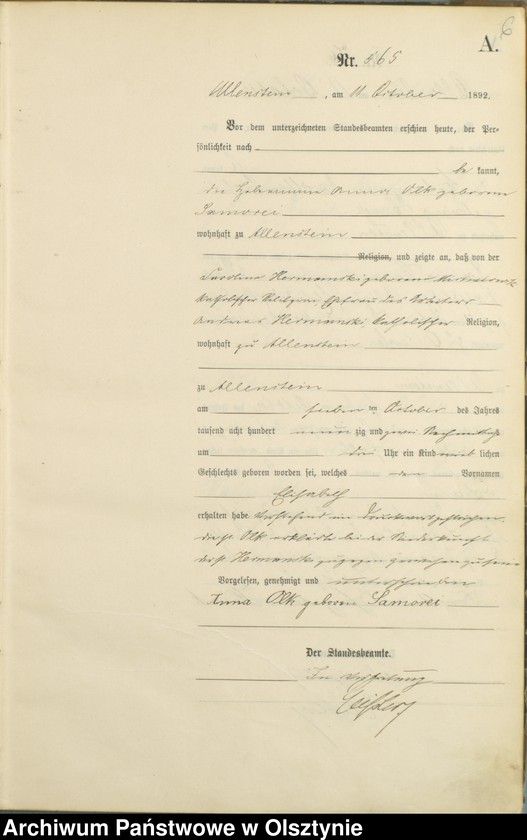 6
A.
Nr. 565
Allenstein, am 11 October 1892.
Vor dem unterzeichneten Standesbeamten erschien heute, der Per=
sönlichkeit nach
be kannt,
die Hebeamme Anna Olk geborene
Samorei
wohnhaft zu Allenstein
Religion, und zeigte an, daß von der
Caroline Hermanski geborenen
katholischer Religion Ehefrau des Arbeiters
Andreas Hermanski, katholischer Religion,
wohnhaft zu Allenstein
zu Allenstein
am sieben ten October des Jahres
tausend acht hundert neun zig und zwei Nachmittags
um drei Uhr ein Kind weib lichen
Geschlechts geboren worden sei, welches den Vornamen
Elisabeth
erhalten habe. Vorstehend ein Druckwort gestrichen.
Olk erklärte bei der Niederkunft
Hermanski zugegen gewesen zu sein
Vorgelesen, genehmigt und unterschrieben
Anna Olk geboren Samorei
Der Standesbeamte.
In Vertretung
Archiwum Państwowe w Olsztynie